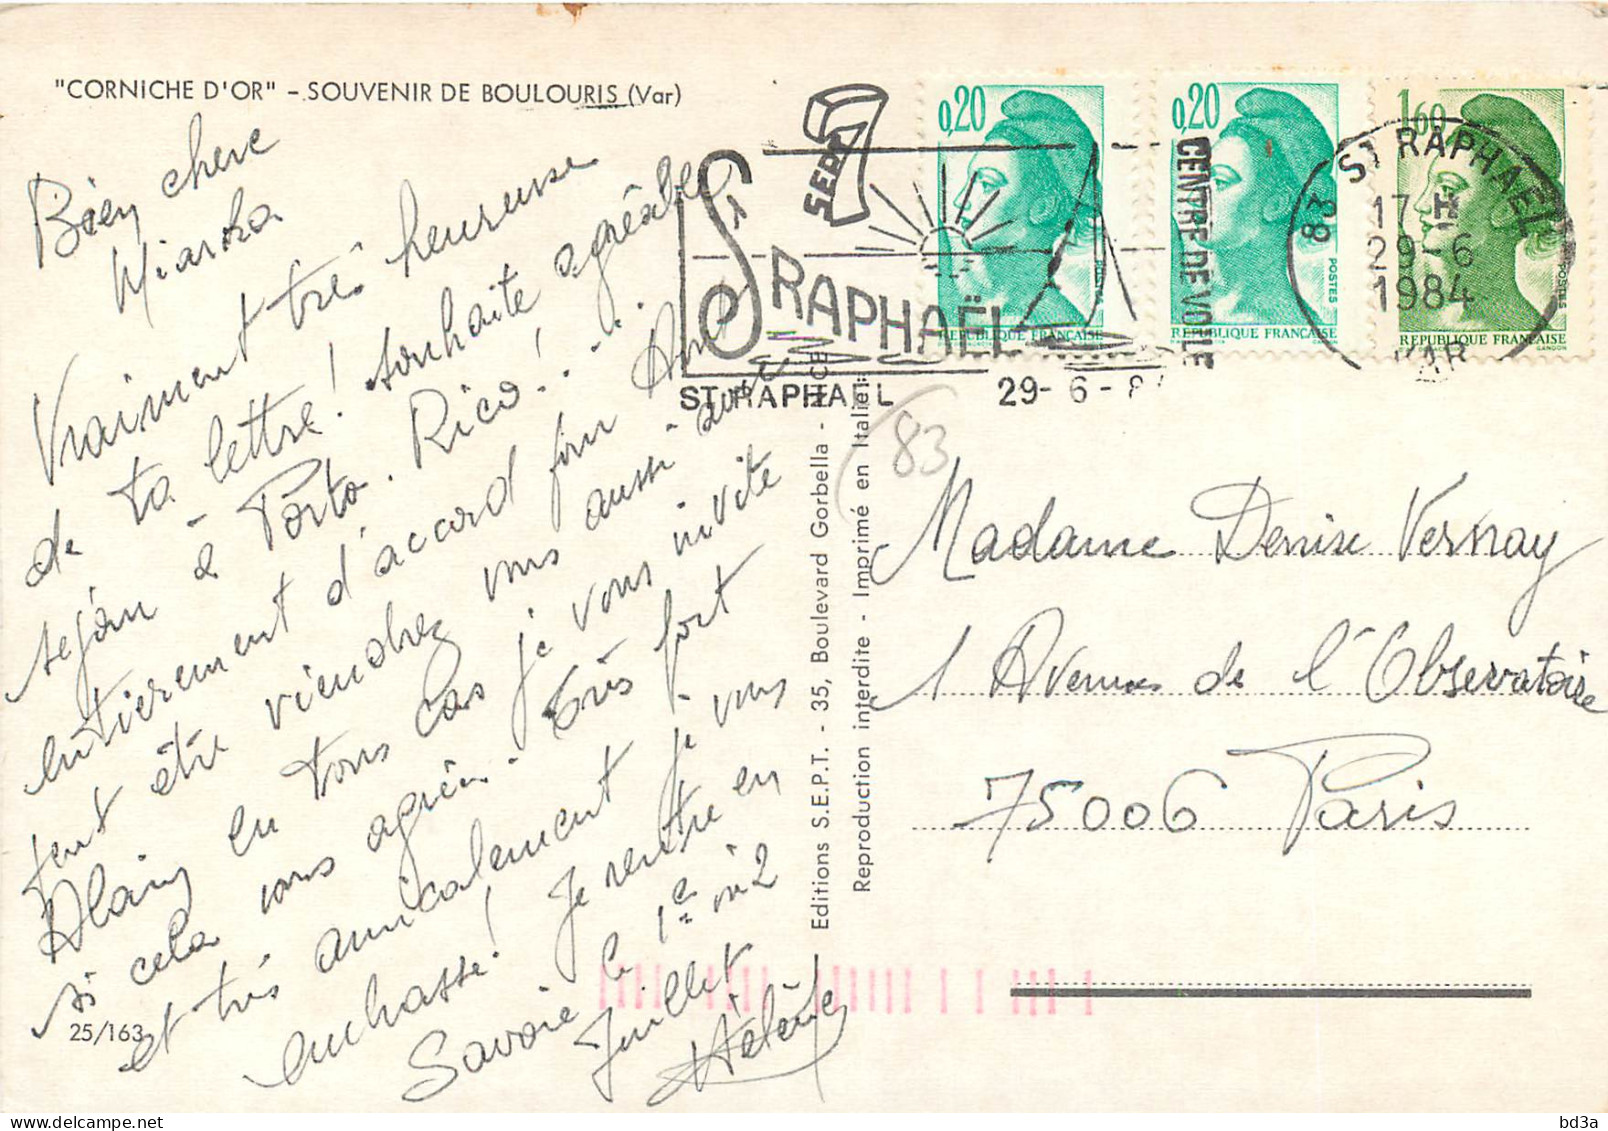 "CORNICHE D'OR" - SOUVENIR DE BOULOURIS (Var)
Bien chère
Miarka
Vraiment très heureuse
de ta lettre! souhaite agréable
séjour à Porto. Rico! . . . .
entièrement d'accord pour
peut être viendrez vous aussi - avec
Alain en tous cas je vous invite
si cela vous agrée - très fort
et très amicalement je vous
embrasse! Je rentre en
Savoie le 1er ou 2
Juillet
Hélène
25/163
Editions S.E.P.T. - 35, Boulevard Gorbella - NICE
Reproduction interdite - Imprimé en Italie
SEPT
ST RAPHAËL
CENTRE DE VOILE
ST RAPHAEL 29-6-84
0,20
POSTES
REPUBLIQUE FRANÇAISE
0,20
POSTES
REPUBLIQUE FRANÇAISE
1,60
POSTES
REPUBLIQUE FRANÇAISE
GANDON
83 ST RAPHAEL
17 H
29-6
1984
VAR
83
Madame Denise Vernay
1 Avenue de l'Observatoire
75006 Paris
delcampe.net
bd3a